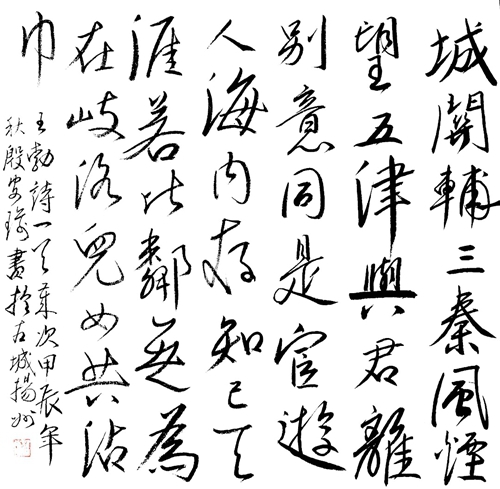 城闕輔三秦風煙
望五津與君離
別意同是宦遊
人海内存知己天
涯若比鄰無為
在岐路兒女共沾
巾
王勃詩一首歲次甲辰年
秋殷書於古城揚州